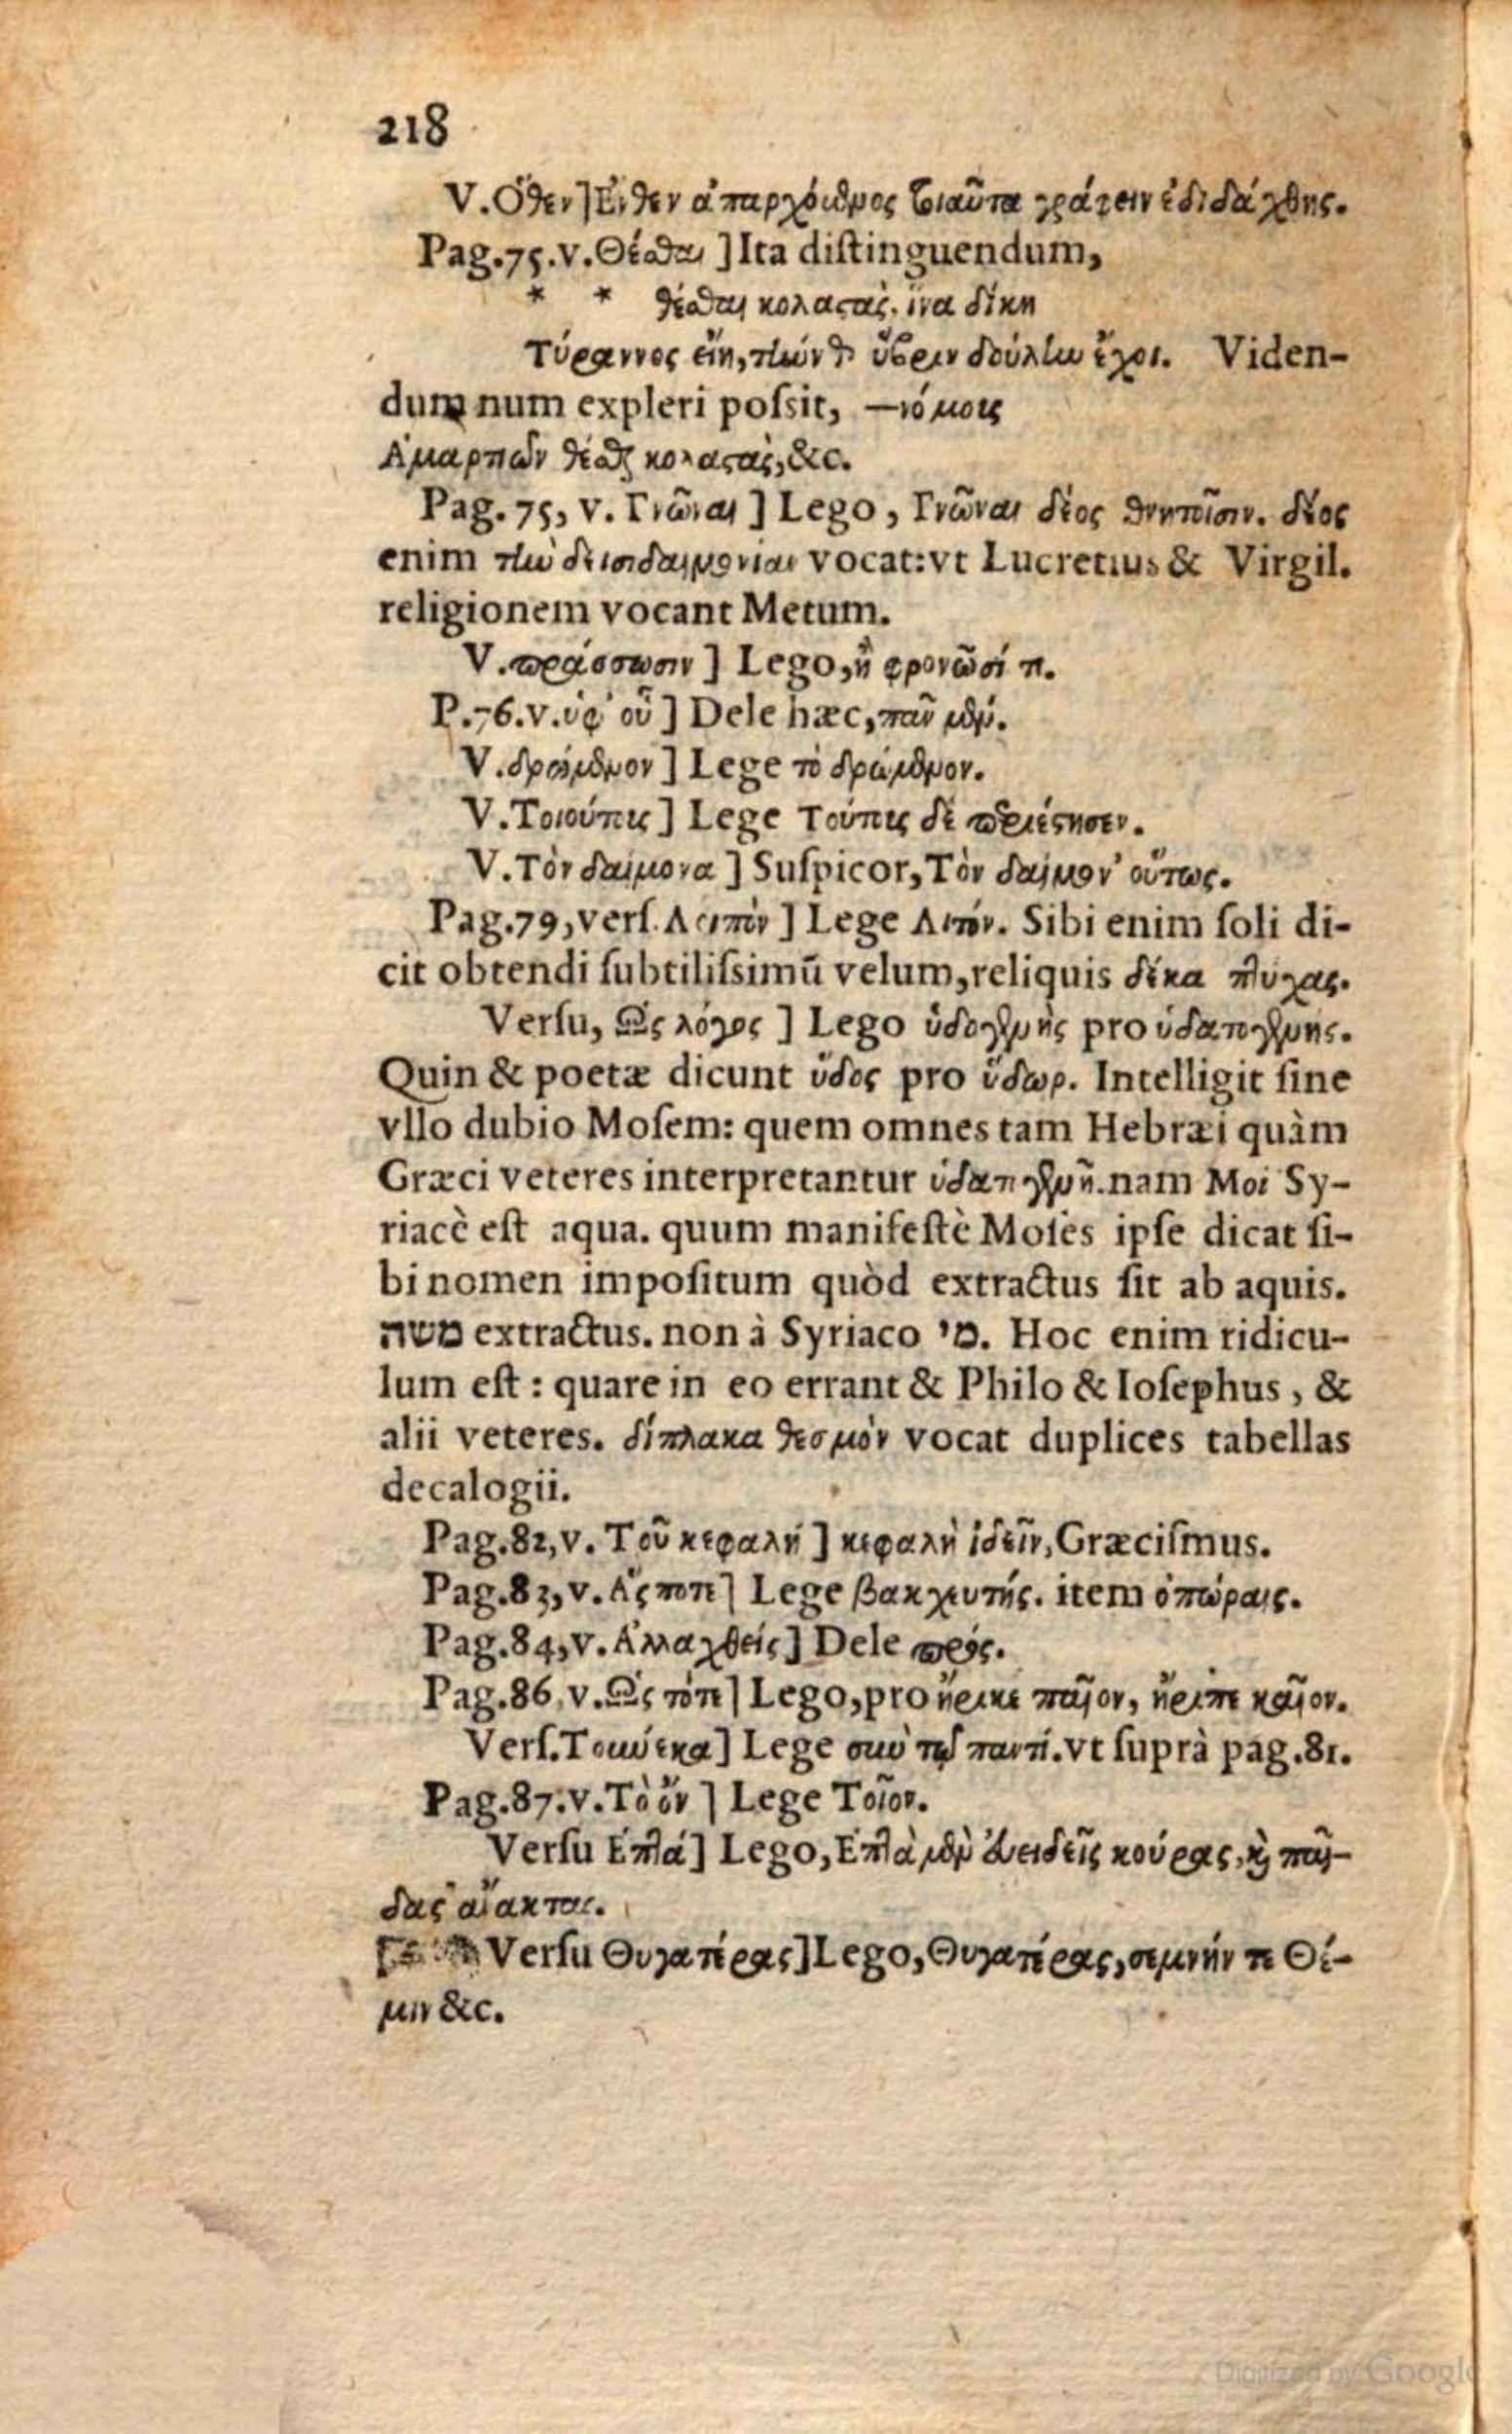 218
V. Ὅθεν] Ἔνθεν ἀπαρχόμενος τοιαῦτα γράφειν ἐδιδάχθης.
Pag. 75. v. Θέσθαι] Ita distinguendum,
* * θέσθαι κολαστάς. ἵνα δίκη
Τύραννος εἴη, τὴν δ' ὕβριν δούλην ἔχοι. Viden-
dum num expleri possit, —νόμοις
Ἁμαρτιῶν θέσθαι κολαστὰς, &c.
Pag. 75, v. Γνῶναι] Lego, Γνῶναι δέος θνητοῖσιν. δέος
enim τὴν δεισιδαιμονίαν vocat: vt Lucretius & Virgil.
religionem vocant Metum.
V. πράσσωσιν] Lego, ἢ φρονῶσί τι.
P. 76. v. ὑφ' οὗ] Dele hæc, πᾶν μέν.
V. δρώμενον] Lege τὸ δρώμενον.
V. Τοιούτοις] Lege Τούτοις δὲ περιέστησεν.
V. Τὸν δαίμονα] Suspicor, Τὸν δαίμον' οὕτως.
Pag. 79, vers. Λεπτὸν] Lege Λιτόν. Sibi enim soli di-
cit obtendi subtilissimū velum, reliquis δέκα πτύχας.
Versu, Ὡς λόγος] Lego ὑδογενὴς pro ὑδατογενής.
Quin & poetæ dicunt ὕδος pro ὕδωρ. Intelligit sine
vllo dubio Mosem: quem omnes tam Hebræi quàm
Græci veteres interpretantur ὑδατογενῆ. nam Μοι Sy-
riacè est aqua. quum manifestè Moses ipse dicat si-
bi nomen impositum quòd extractus sit ab aquis.
משה extractus. non à Syriaco מי. Hoc enim ridicu-
lum est: quare in eo errant & Philo & Iosephus, &
alii veteres. δίπλακα θεσμὸν vocat duplices tabellas
decalogii.
Pag. 82, v. Τοῦ κεφαλή] κεφαλὴ ἰδεῖν, Græcismus.
Pag. 83, v. Ἅς ποτε] Lege βακχευτής. item ὀπώραις.
Pag. 84, v. Ἀλλαχθείς] Dele πρός.
Pag. 86, v. Ὡς τότε] Lego, pro ἤρικε παῖον, ἤριπε καῖον.
Vers. Τοὔνεκα] Lege σὺν τῷ παντί. vt suprà pag. 81.
Pag. 87. v. Τὸ ὂν] Lege Τοῖον.
Versu Ἑπτά] Lego, Ἑπτὰ μὲν εὐειδεῖς κούρας, καὶ παῖ-
δας ἄνακτας.
Versu Θυγατέρας] Lego, Θυγατέρας, σεμνήν τε Θέ-
μιν &c.
Digitized by Google